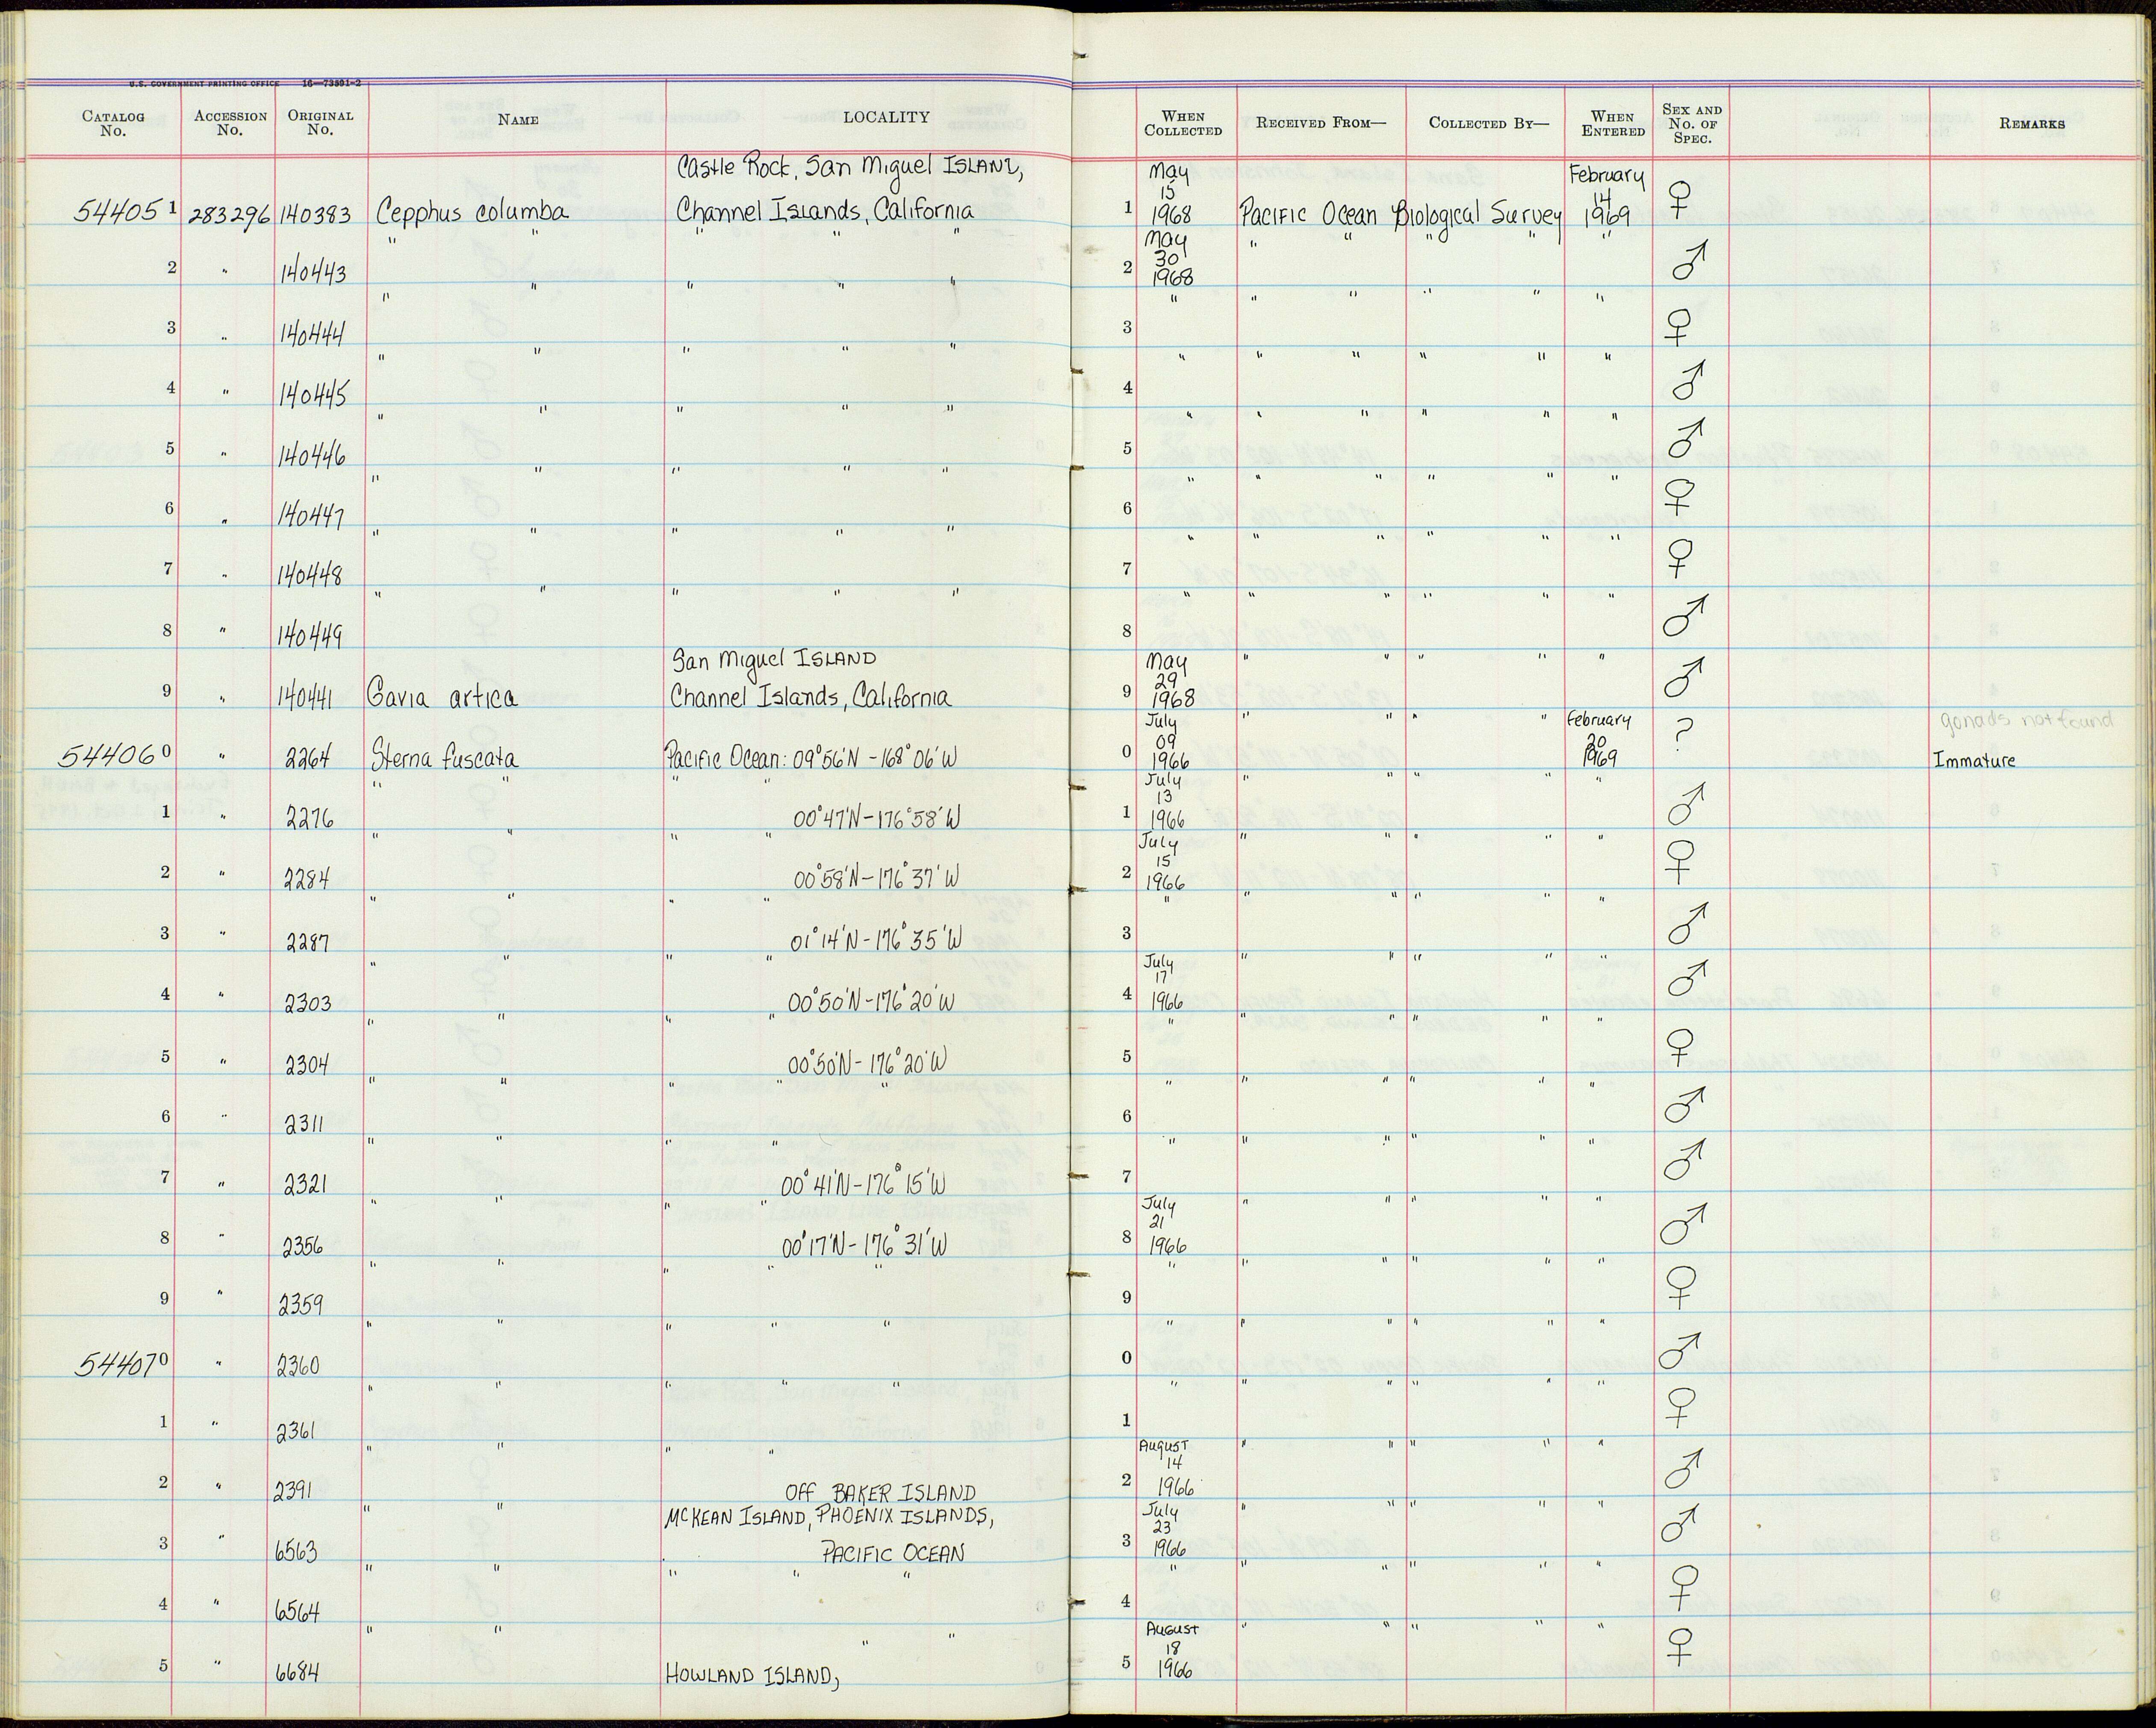 U.S. GOVERNMENT PRINTING OFFICE 16—73591-2
CATALOG No. ACCESSION No. ORIGINAL No. NAME LOCALITY WHEN COLLECTED RECEIVED FROM— COLLECTED BY— WHEN ENTERED SEX AND No. OF SPEC. REMARKS
Castle Rock, San Miguel ISLAND, May February
15 14
544051 283296 140383 Cepphus columba Channel Islands, California 1 1968 Pacific Ocean Biological Survey 1969 ♀
" " " " " May " " " " "
30
2 " 140443 2 1968 ♂
" " " " " " " " " " "
3 " 140444 3 ♀
" " " " " " " " " " "
4 " 140445 4 ♂
" " " " " " " " " " "
5 " 140446 5 ♂
" " " " " " " " " " "
6 " 140447 6 ♀
" " " " " " " " " " "
7 " 140448 7 ♀
" " " " " " " " " " "
8 " 140449 8 ♂
San Miguel ISLAND May " " " " "
29
9 " 140441 Gavia artica Channel Islands, California 9 1968 ♂
July " " " " February gonads not found
09 20
544060 " 2264 Sterna fuscata Pacific Ocean: 09°56'N - 168°06'W 0 1966 1969 ? Immature
" " " " July " " " " "
13
1 " 2276 00°47'N - 176°58'W 1 1966 ♂
" " " " July " " " " "
15
2 " 2284 00°58'N - 176°37'W 2 1966 ♀
" " " " " " " " " "
3 " 2287 01°14'N - 176°35'W 3 ♂
" " " " July " " " " "
17
4 " 2303 00°50'N - 176°20'W 4 1966 ♂
" " " " " " " " " "
5 " 2304 00°50'N - 176°20'W 5 ♀
" " " " " " " " " " "
6 " 2311 6 ♂
" " " " " " " " " "
7 " 2321 00°41'N - 176°15'W 7 ♂
" " " " July " " " " "
21
8 " 2356 00°17'N - 176°31'W 8 1966 ♂
" " " " " " " " " " "
9 " 2359 9 ♀
" " " " " " " " " " "
544070 " 2360 0 ♂
" " " " " " " " " " "
1 " 2361 1 ♀
" " " " August " " " " "
14
2 " 2391 Off BAKER ISLAND 2 1966 ♂
" " MCKEAN ISLAND, PHOENIX ISLANDS, July " " " " "
23
3 " 6563 PACIFIC OCEAN 3 1966 ♂
" " " " " " " " " " "
4 " 6564 4 ♀
" " " " August " " " " "
18
5 " 6684 HOWLAND ISLAND, 5 1966 ♀